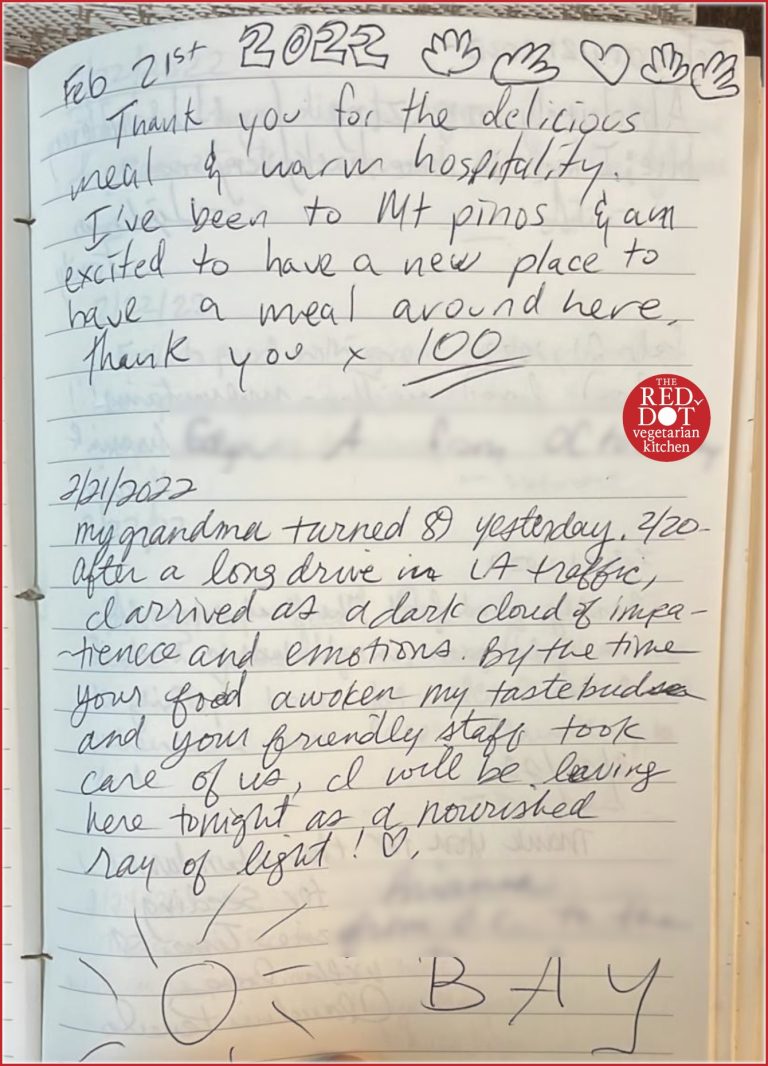 Feb 21st 2022
Thank you for the delicious
meal & warm hospitality.
I've been to Mt pinos & am
excited to have a new place to
have a meal around here,
thank you x 100
THE
RED
DOT
vegetarian
kitchen
2/21/2022
my grandma turned 89 yesterday. 2/20-
after a long drive in LA traffic,
I arrived as a dark cloud of impa-
-tience and emotions. By the time
your food awoken my tastebuds
and your friendly staff took
care of us, I will be leaving
here tonight as a nourished
ray of light! ♡.
BAY